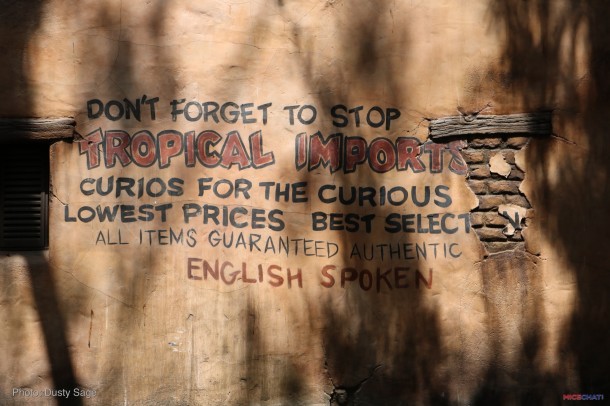 DON'T FORGET TO STOP
TROPICAL IMPORTS
CURIOS FOR THE CURIOUS
LOWEST PRICES BEST SELECT N
ALL ITEMS GUARANTEED AUTHENTIC
ENGLISH SPOKEN
Photo: Dusty Sage
MICECHAT!